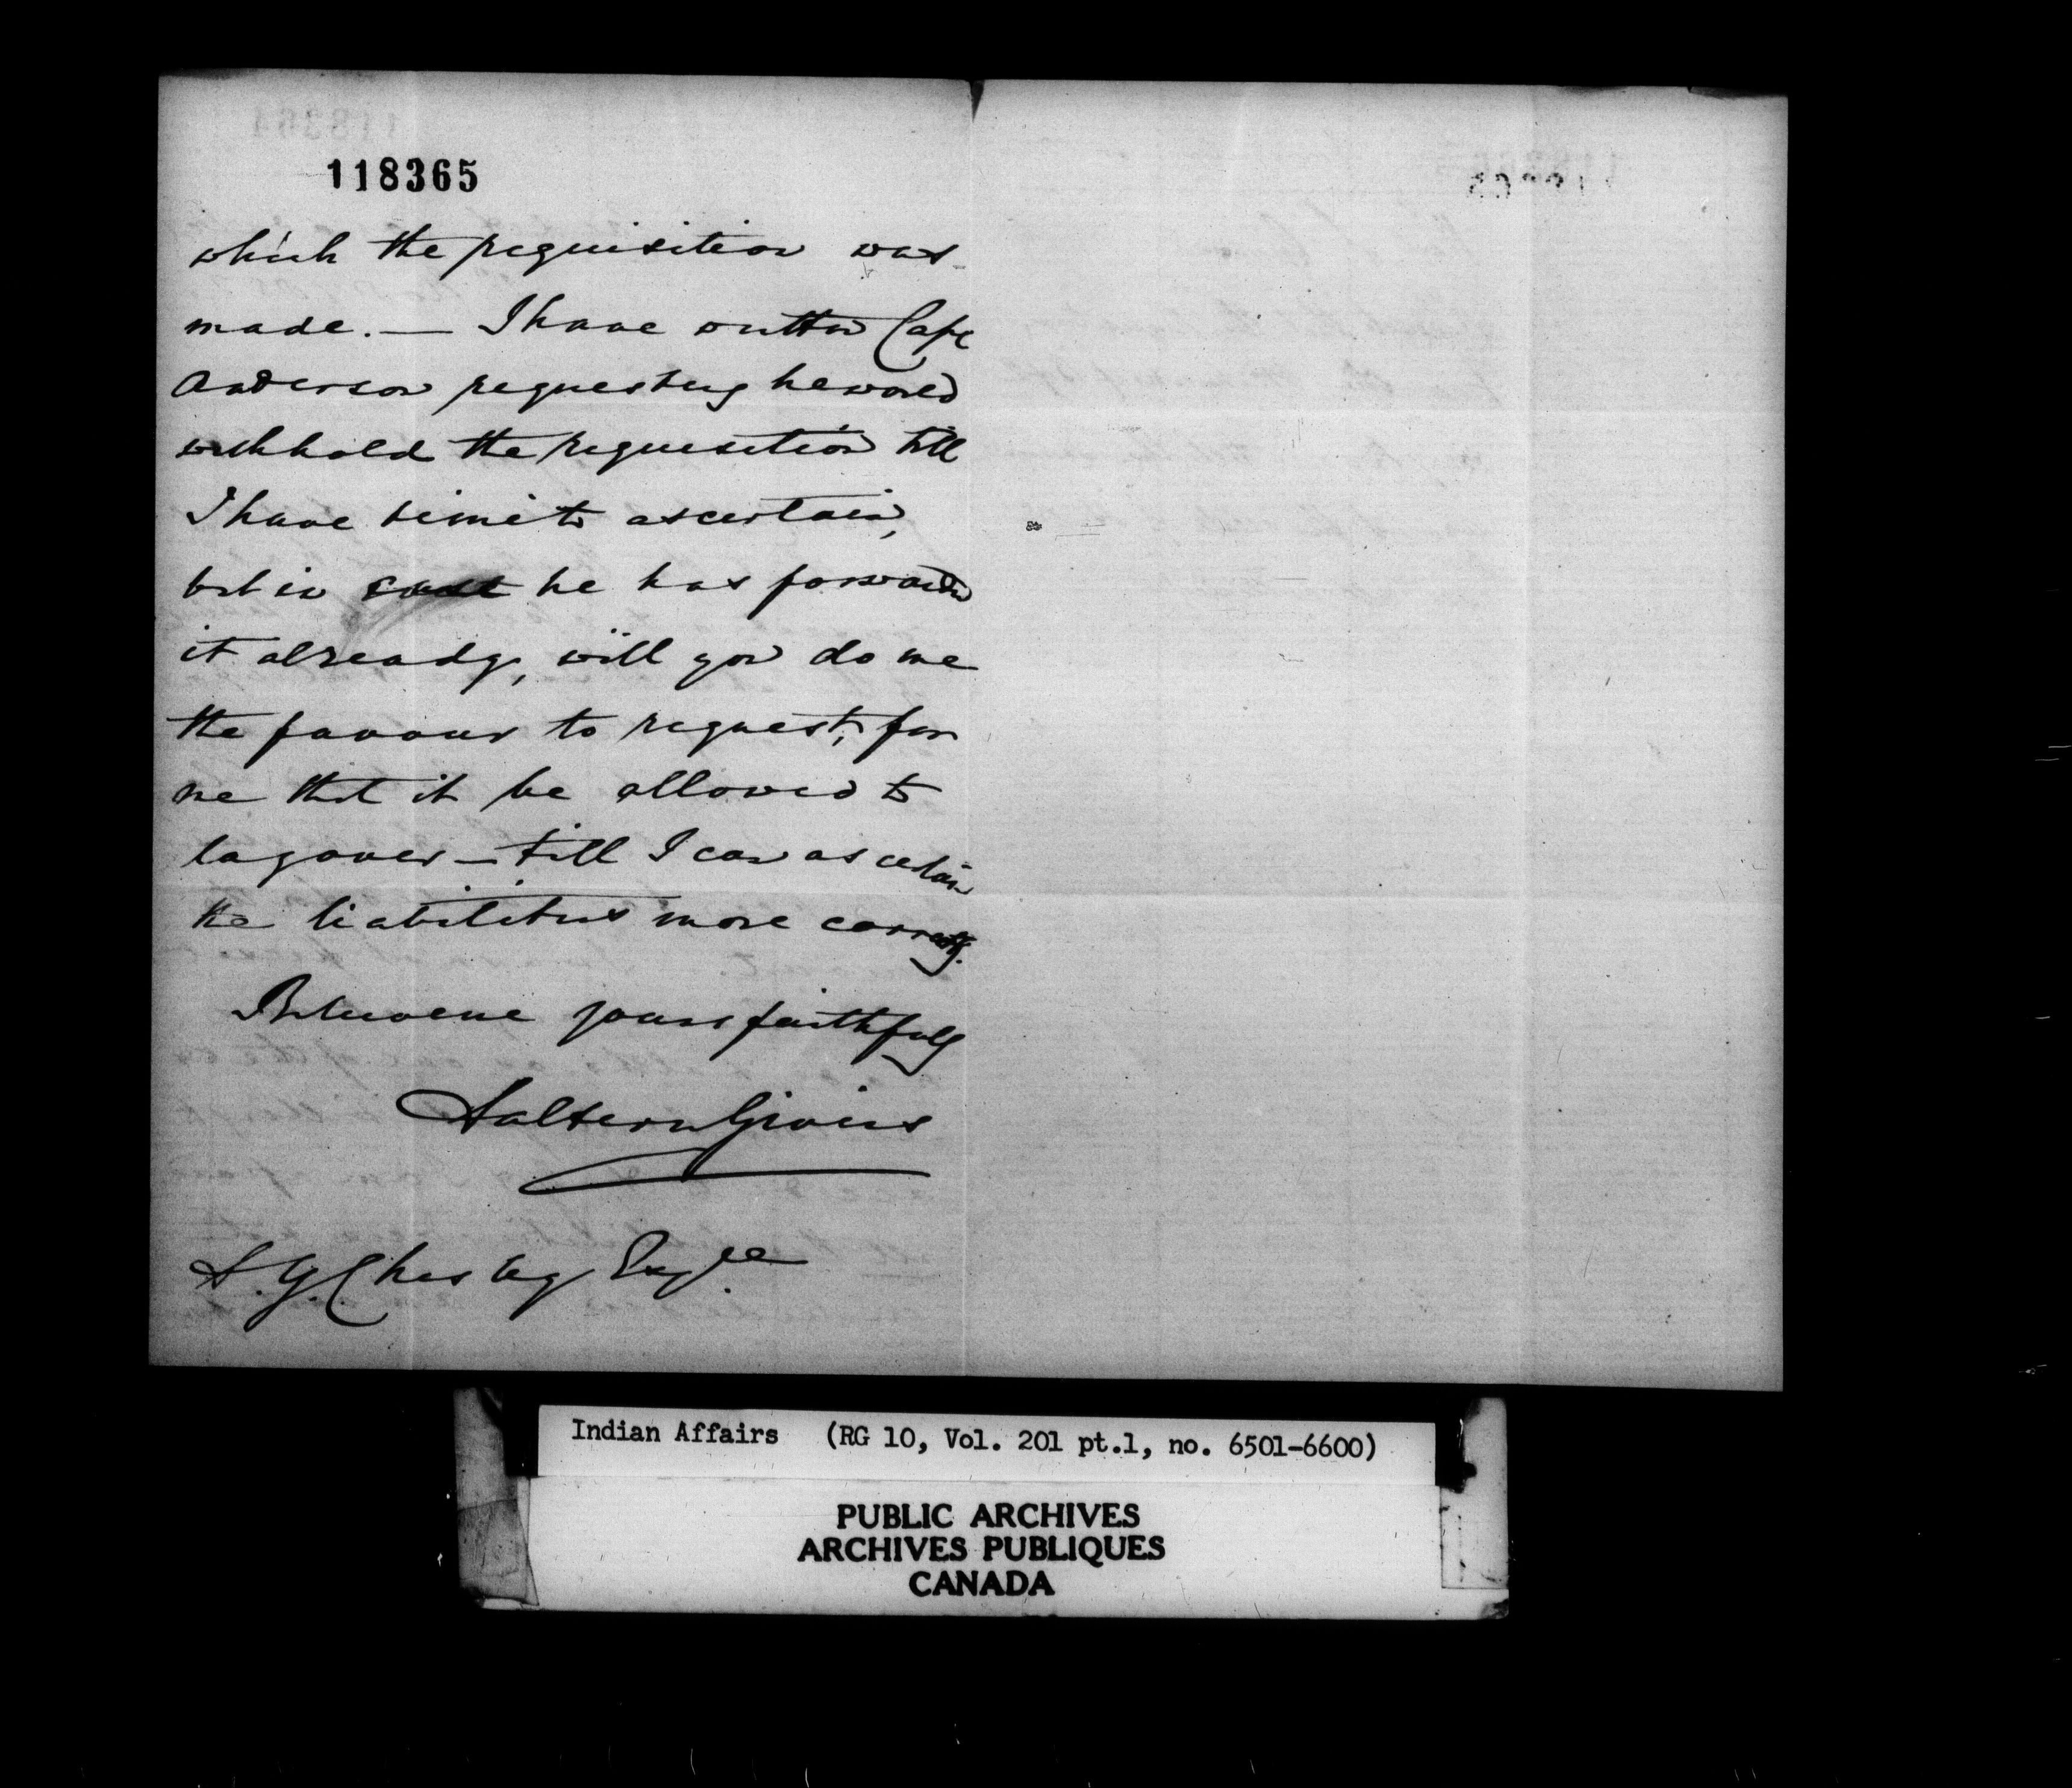 118365
which the requisition was
made. — I have written Capt
Anderson requesting he would
withhold the requisition till
I have time to ascertain,
but in case he has forwarded
it already, will you do me
the favour to request, for
me that it be allowed to
lay over — till I can ascertain
the liabilities more correctly.
Believe me yours faithfully
Saltern Givins
S. Y. Chesley Esqre
Indian Affairs (RG 10, Vol. 201 pt.1, no. 6501-6600)
PUBLIC ARCHIVES
ARCHIVES PUBLIQUES
CANADA